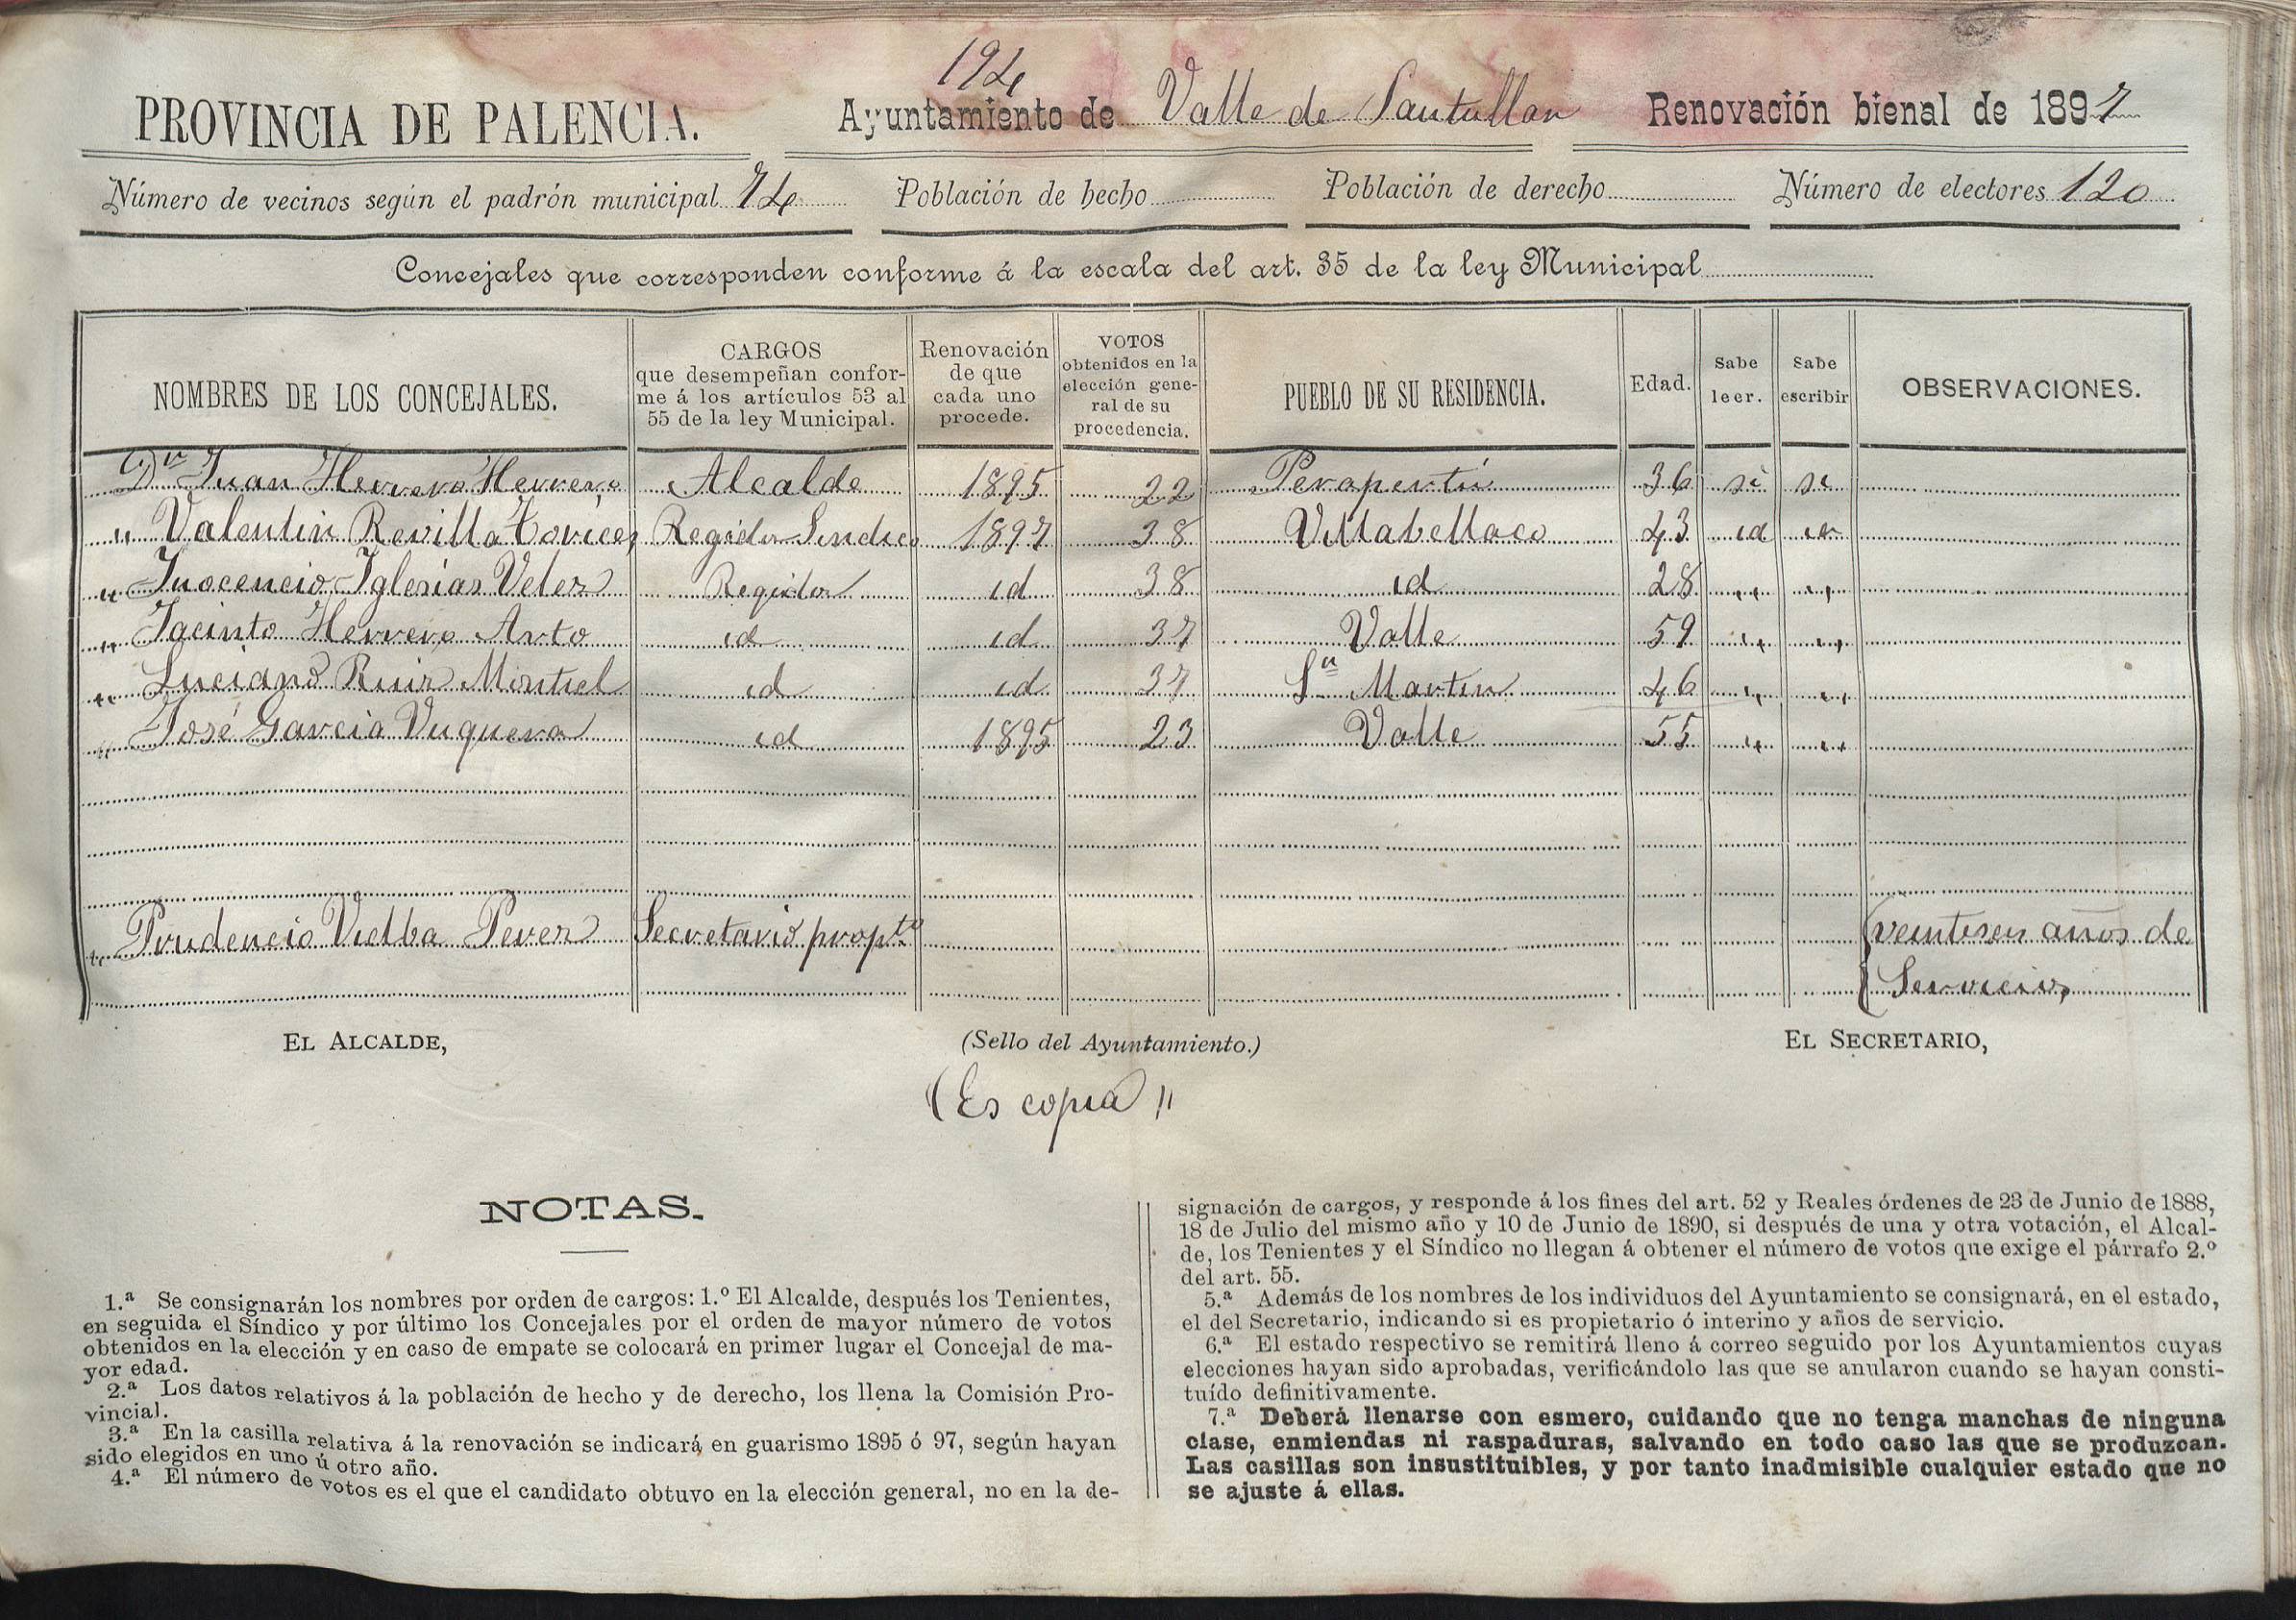 194
PROVINCIA DE PALENCIA. Ayuntamiento de Valle de Santullan Renovación bienal de 1897
Número de vecinos según el padrón municipal 74 Población de hecho Población de derecho Número de electores 120
Concejales que corresponden conforme á la escala del art. 35 de la ley Municipal
NOMBRES DE LOS CONCEJALES. CARGOS que desempeñan conforme á los artículos 53 al 55 de la ley Municipal. Renovación de que cada uno procede. VOTOS obtenidos en la elección general de su procedencia. PUEBLO DE SU RESIDENCIA. Edad. Sabe leer. Sabe escribir OBSERVACIONES.
Dn Juan Herrero Herrero Alcalde 1895 22 Perapertú 36 si si
" Valentin Revilla Regidor Sindico 1897 38 Villabellaco 43 id id
" Inocencio Iglesias Velez Regidor id 38 id 28 " "
" Jacinto Herrero Arto id id 37 Valle 59 " "
" Luciano Ruiz Montiel id id 37 Sn Martin 46 " "
" José Garcia id 1895 23 Valle 55 " "
" Prudencio Vielba Perez Secretario propto veintiseis años de
Servicio,
EL ALCALDE, (Sello del Ayuntamiento.) EL SECRETARIO,
(Es copia)
NOTAS.
1.ª Se consignarán los nombres por orden de cargos: 1.º El Alcalde, después los Tenientes,
en seguida el Síndico y por último los Concejales por el orden de mayor número de votos
obtenidos en la elección y en caso de empate se colocará en primer lugar el Concejal de ma-
yor edad.
2.ª Los datos relativos á la población de hecho y de derecho, los llena la Comisión Pro-
vincial.
3.ª En la casilla relativa á la renovación se indicará en guarismo 1895 ó 97, según hayan
sido elegidos en uno ú otro año.
4.ª El número de votos es el que el candidato obtuvo en la elección general, no en la de-
signación de cargos, y responde á los fines del art. 52 y Reales órdenes de 23 de Junio de 1888,
18 de Julio del mismo año y 10 de Junio de 1890, si después de una y otra votación, el Alcal-
de, los Tenientes y el Síndico no llegan á obtener el número de votos que exige el párrafo 2.º
del art. 55.
5.ª Además de los nombres de los individuos del Ayuntamiento se consignará, en el estado,
el del Secretario, indicando si es propietario ó interino y años de servicio.
6.ª El estado respectivo se remitirá lleno á correo seguido por los Ayuntamientos cuyas
elecciones hayan sido aprobadas, verificándolo las que se anularon cuando se hayan consti-
tuído definitivamente.
7.ª Deberá llenarse con esmero, cuidando que no tenga manchas de ninguna
clase, enmiendas ni raspaduras, salvando en todo caso las que se produzcan.
Las casillas son insustituibles, y por tanto inadmisible cualquier estado que no
se ajuste á ellas.